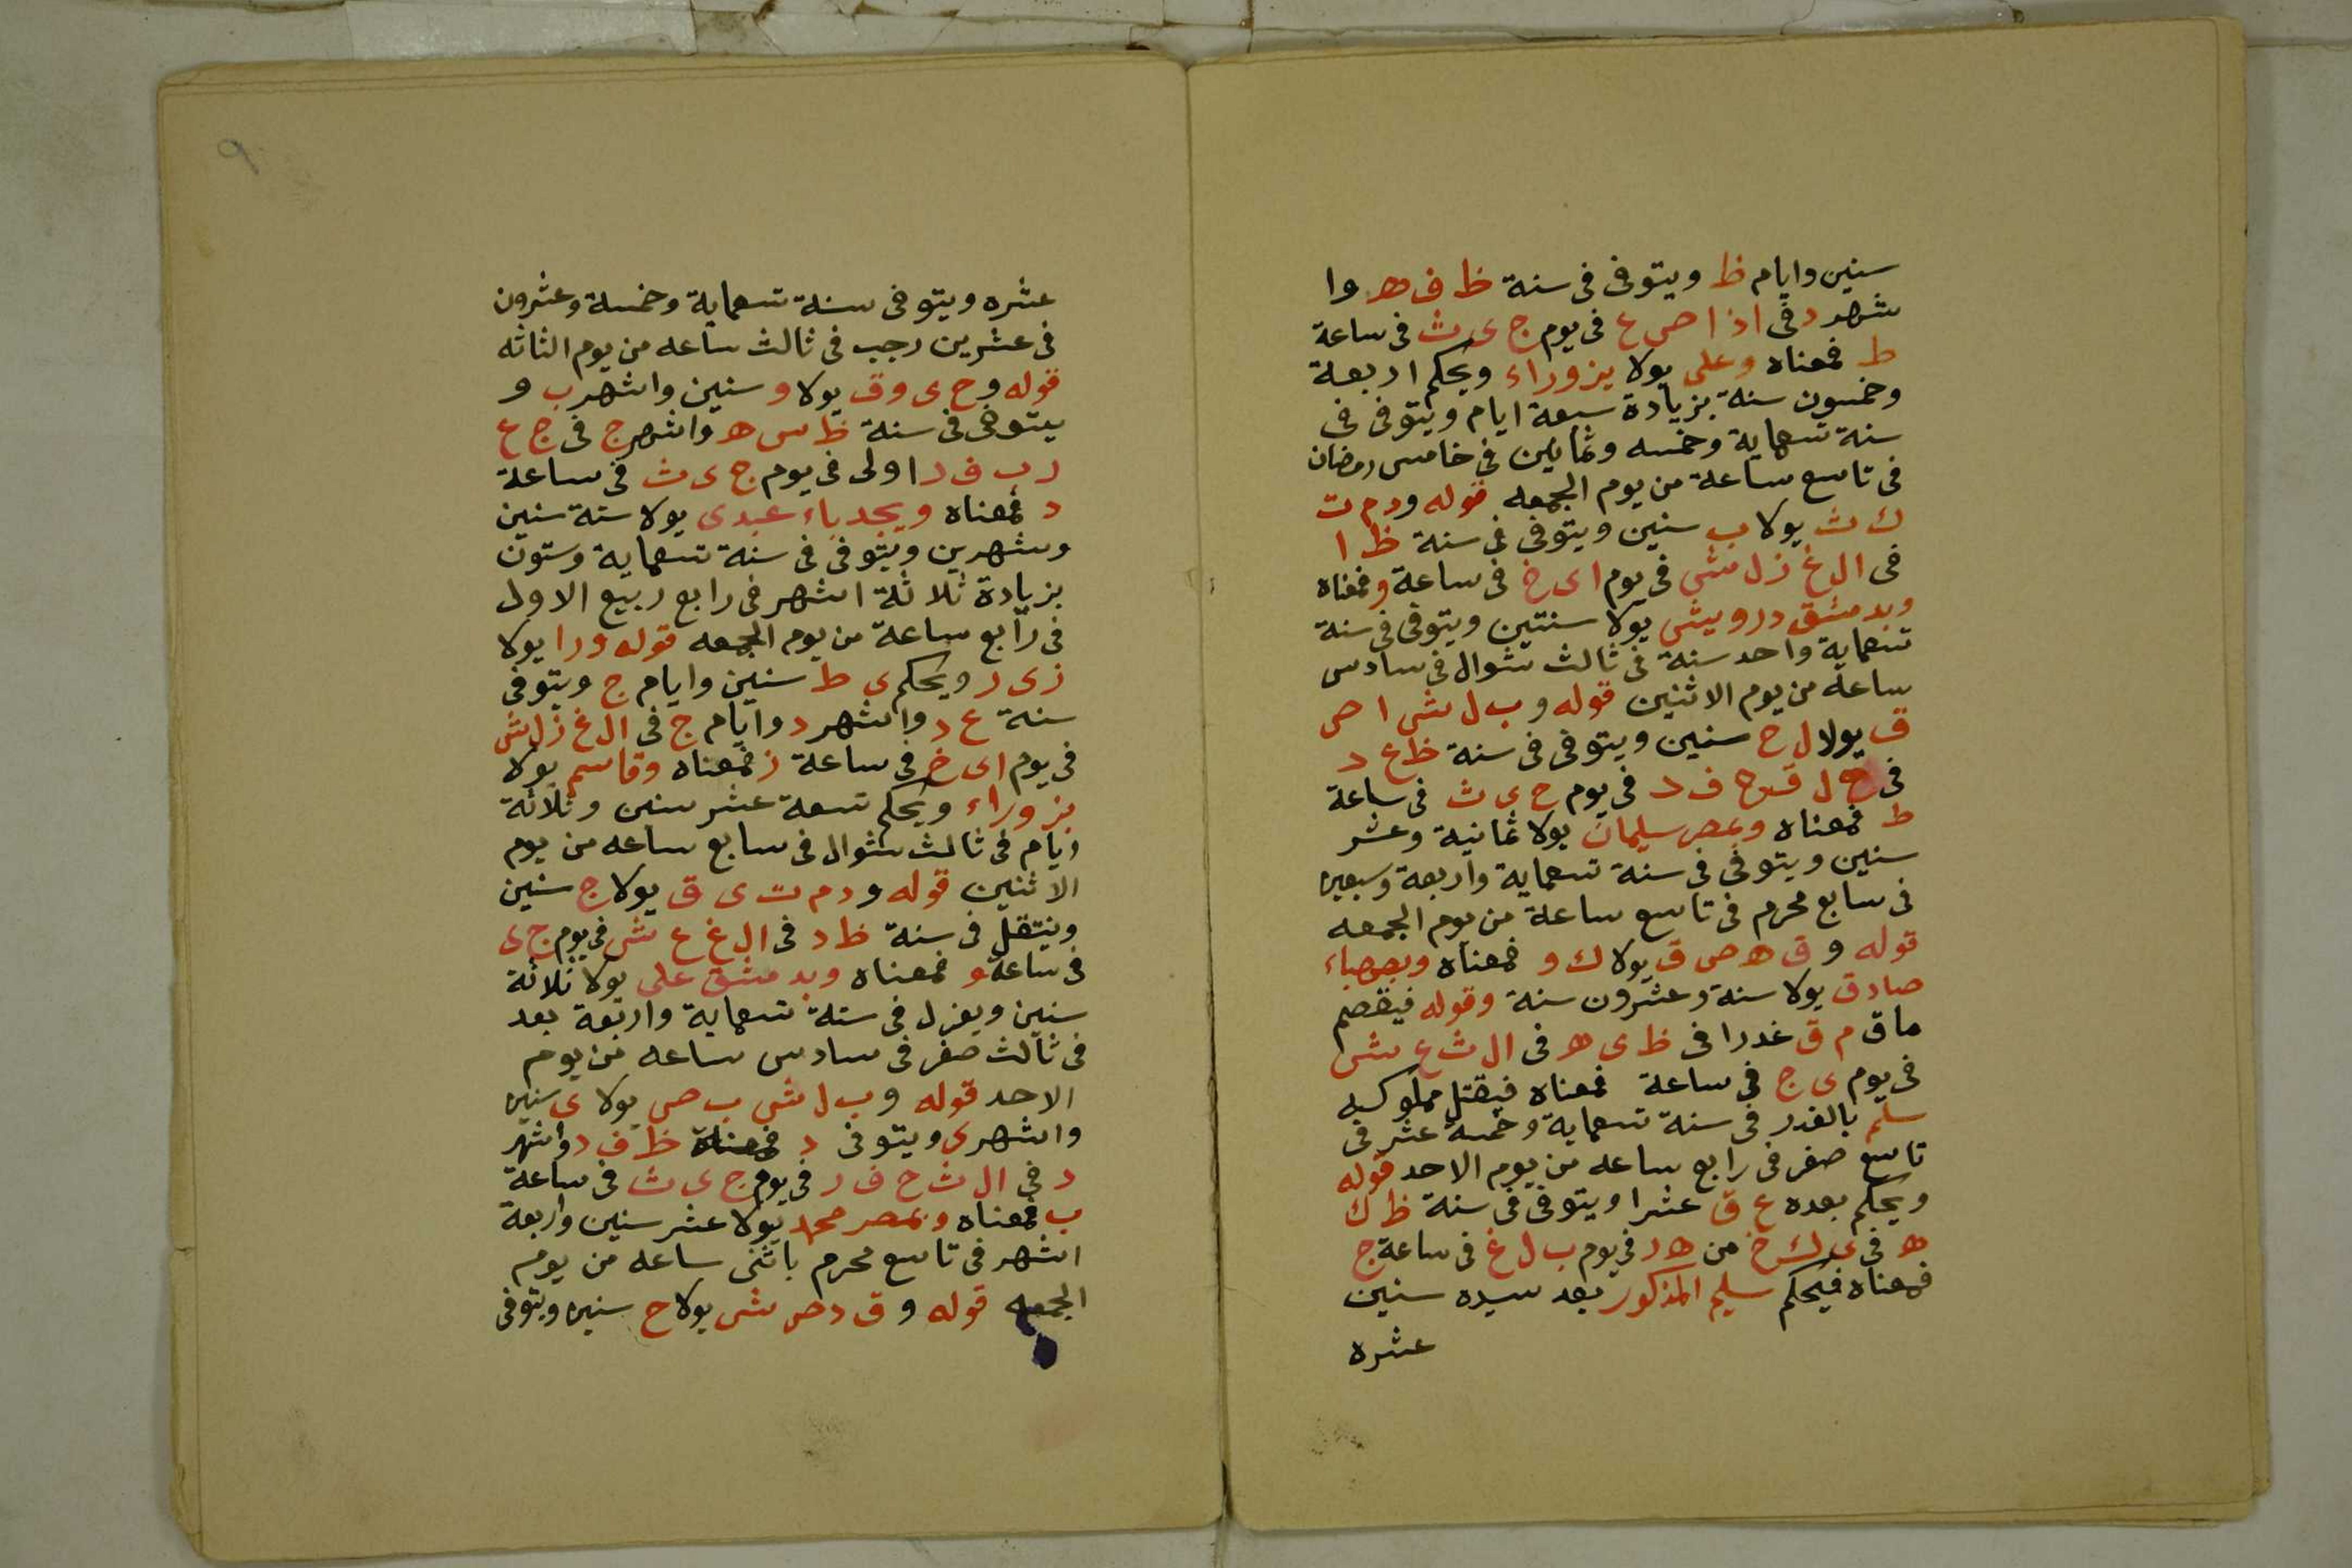 سنين وايام ظ ويتوفى فى سنة ظ ف ه وا
شهر د فى ا ذ ا ص ع فى يوم ج ى ث فى ساعة
ط فمعناه وعلى يولا يزوراء ويحكم اربعة
وخمسون سنة بزيادة سبعة ايام ويتوفى فى
سنة تسعماية وخمسه وثمانين فى خامس رمضان
فى تاسع ساعة من يوم الجمعه قوله و د م ت
ك ث يولا ب سنين ويتوفى فى سنة ظ ا
فى ال غ ز ل ش فى يوم ا ى خ فى ساعة و فمعناه
وبدمشق درويش يولا سنتين ويتوفى فى سنة
تسعماية واحد سنة فى ثالث شوال فى سادس
ساعة من يوم الاثنين قوله و ب ل ش ا ص
ق يولا ل ح سنين ويتوفى فى سنة ظ ع د
فى ح ل ق ح ف د فى يوم ح ى ث فى ساعة
ط فمعناه وبمصر سليمان يولا ثمانية وعشر
سنين ويتوفى فى سنة تسعماية واربعة وسبعين
فى سابع محرم فى تاسع ساعة من يوم الجمعه
قوله و ق ه ص ق يولا ك و فمعناه وبصهباء
صادق يولا ستة وعشرون سنة وقوله فيقصم
ما ق م ق غدرا فى ظ ى ه فى ال ث ع ش
فى يوم ى ج فى ساعة فمعناه فيقتل مملوكه
سلم بالغدر فى سنة تسعماية وخمسة عشر فى
تاسع صفر فى رابع ساعه من يوم الاحد قوله
ويحكم بعده ع ق عشرا ويتوفى فى سنة ظ ك
ه فى ى ك خ من ه ر فى يوم ب ل غ فى ساعة ج
فمعناه فيحكم سليم المذكور بعد سيده سنين
عشره
٩
عشره ويتوفى سنة تسعماية وخمسة وعشرون
فى عشرين رجب فى ثالث ساعه من يوم الثاثه
قوله و ح ى و ق يولا و سنين واشهر ب و
يتوفى فى سنة ظ س ه واشهر ج فى ج ع
ر ب ف ر اولى فى يوم ج ى ث فى ساعة
د فمعناه ويجدباء عبدى يولا ستة سنين
وشهرين ويتوفى فى سنة تسعماية وستون
بزيادة ثلاثة اشهر فى رابع ربيع الاول
فى رابع ساعة من يوم الجمعه قوله و را يولا
ز ى ر ويحكم ى ط سنين وايام ج ويتوفى
سنة ع د واشهر د وايام ج فى ال غ ز ل ش
فى يوم ا ى خ فى ساعة ز فمعناه وقاسم يولا
بزوراء ويحكم تسعة عشر سنين وثلاثة
ايام فى ثالث شوال فى سابع ساعه من يوم
الاثنين قوله و د م ت ى ق يولا ج سنين
وينتقل فى سنة ظ د فى ال غ ع ش فى يوم ج ى
فى ساعة و فمعناه وبدمشق على يولا ثلاثة
سنين ويعزل فى سنة تسعماية واربعة بعد
فى ثالث صفر فى سادس ساعه من يوم
الاحد قوله و ب ل ش ب ص يولا ى سنين
واشهر ى ويتوفى د فمعناه ظ ف د واشهر
د فى ال ث ح ف ر فى يوم ج ى ث فى ساعة
ب فمعناه وبمصر محمد يولا عشر سنين واربعة
اشهر فى تاسع محرم باثنى ساعه من يوم
الجمعه قوله و ق د ص ش يولا ح سنين ويتوفى